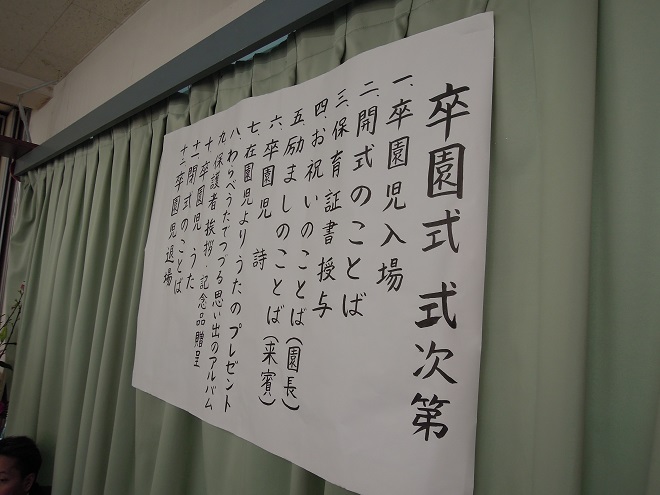 卒園式 式次第
一、卒園児入場
二、開式のことば
三、保育証書授与
四、お祝いのことば(園長)
五、励ましのことば(来賓)
六、卒園児 詩
七、在園児よりうたのプレゼント
八、わらべうたでつづる思い出のアルバム
九、保護者挨拶・記念品贈呈
十、卒園児 うた
十一、閉式のことば
十二、卒園児退場